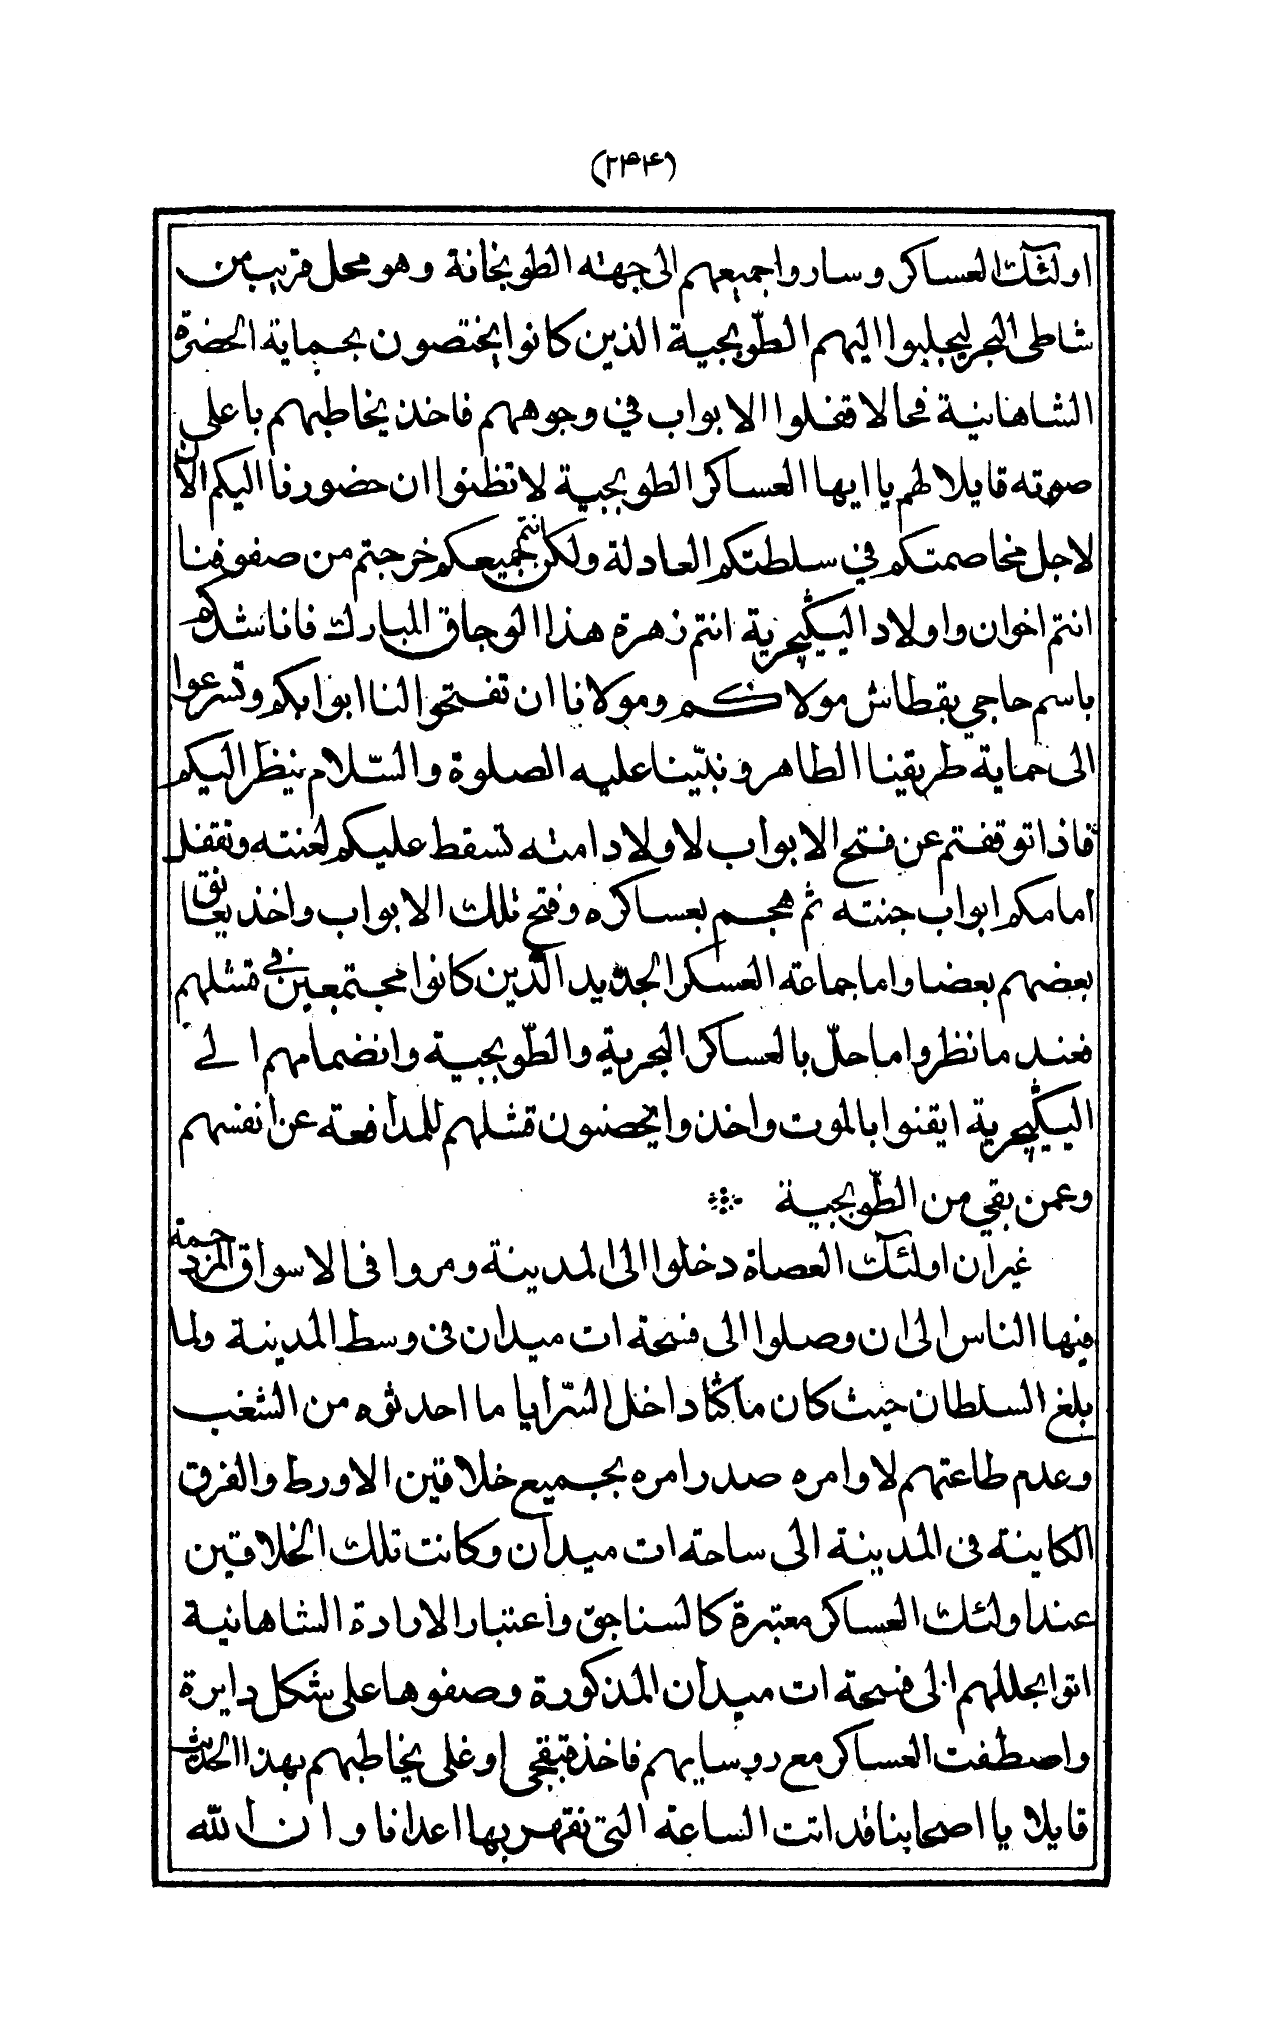 (٢٤٤)
اولئك العساكر وساروا جميعهم الى جهته الطوبخانة وهو محل قريب من
شاطى البحر ليجلبوا اليهم الطّوبجية الذين كانوا يختصون بحماية الحضرة
الشاهانية فحالا قفلوا الابواب في وجوههم فاخذ يخاطبهم باعلى
صوته قايلا لهم يا ايها العساكر الطوبجية لا تظنوا ان حضورنا اليكم الآن
لاجل مخاصمتكم في سلطتكم العادلة ولكن انتم جميعكم خرجتم من صفوفنا
انتم اخوان واولاد اليكيچرية انتم زهرة هذا الوجاق المبارك فاناشدكم
باسم حاجي بقطاش مولاكم ومولانا ان تفتحوا لنا ابوابكم وتسرعوا
الى حماية طريقنا الطاهر ونبيّنا عليه الصلوة والسّلام ينظر اليكم
فاذا توقفتم عن فتح الابواب لاولاد امته تسقط عليكم لعنته وتقفل
امامكم ابواب جنته ثم هجم بعساكره وفتح تلك الابواب واخذ يعانق
بعضهم بعضا واما جماعة العسكر الجديد الّذين كانوا مجتمعين في قشلهم
فعند ما نظروا ما حلّ بالعساكر البحرية والطّوبجية وانضمامهم الى
اليكيچرية ايقنوا بالموت واخذوا يحصنون قشلهم للمدافعة عن انفسهم
وعمن بقي من الطّوبجية
غير ان اولئك العصاة دخلوا الى المدينة ومروا في الاسواق المزدحمة
فيها الناس الى ان وصلوا الى فسحة ات ميدان في وسط المدينة ولما
بلغ السلطان حيث كان ماكثا داخل السّرايا ما احدثوه من الشغب
وعدم طاعتهم لاوامره صدر امره بجميع خلاقين الاورط والفرق
الكاينة في المدينة الى ساحة ات ميدان وكانت تلك الخلاقين
عند اولئك العساكر معتبرة كالسناجق واعتبار الارادة الشاهانية
اتوا بجللهم الى فسحة ات ميدان المذكورة وصفوها على شكل دايرة
واصطفت العساكر مع روسايهم فاخذ قبقجي اوغلى يخاطبهم بهذا الحديث
قايلا يا اصحابنا قد اتت الساعة التي نقهر بها اعدانا وان الله